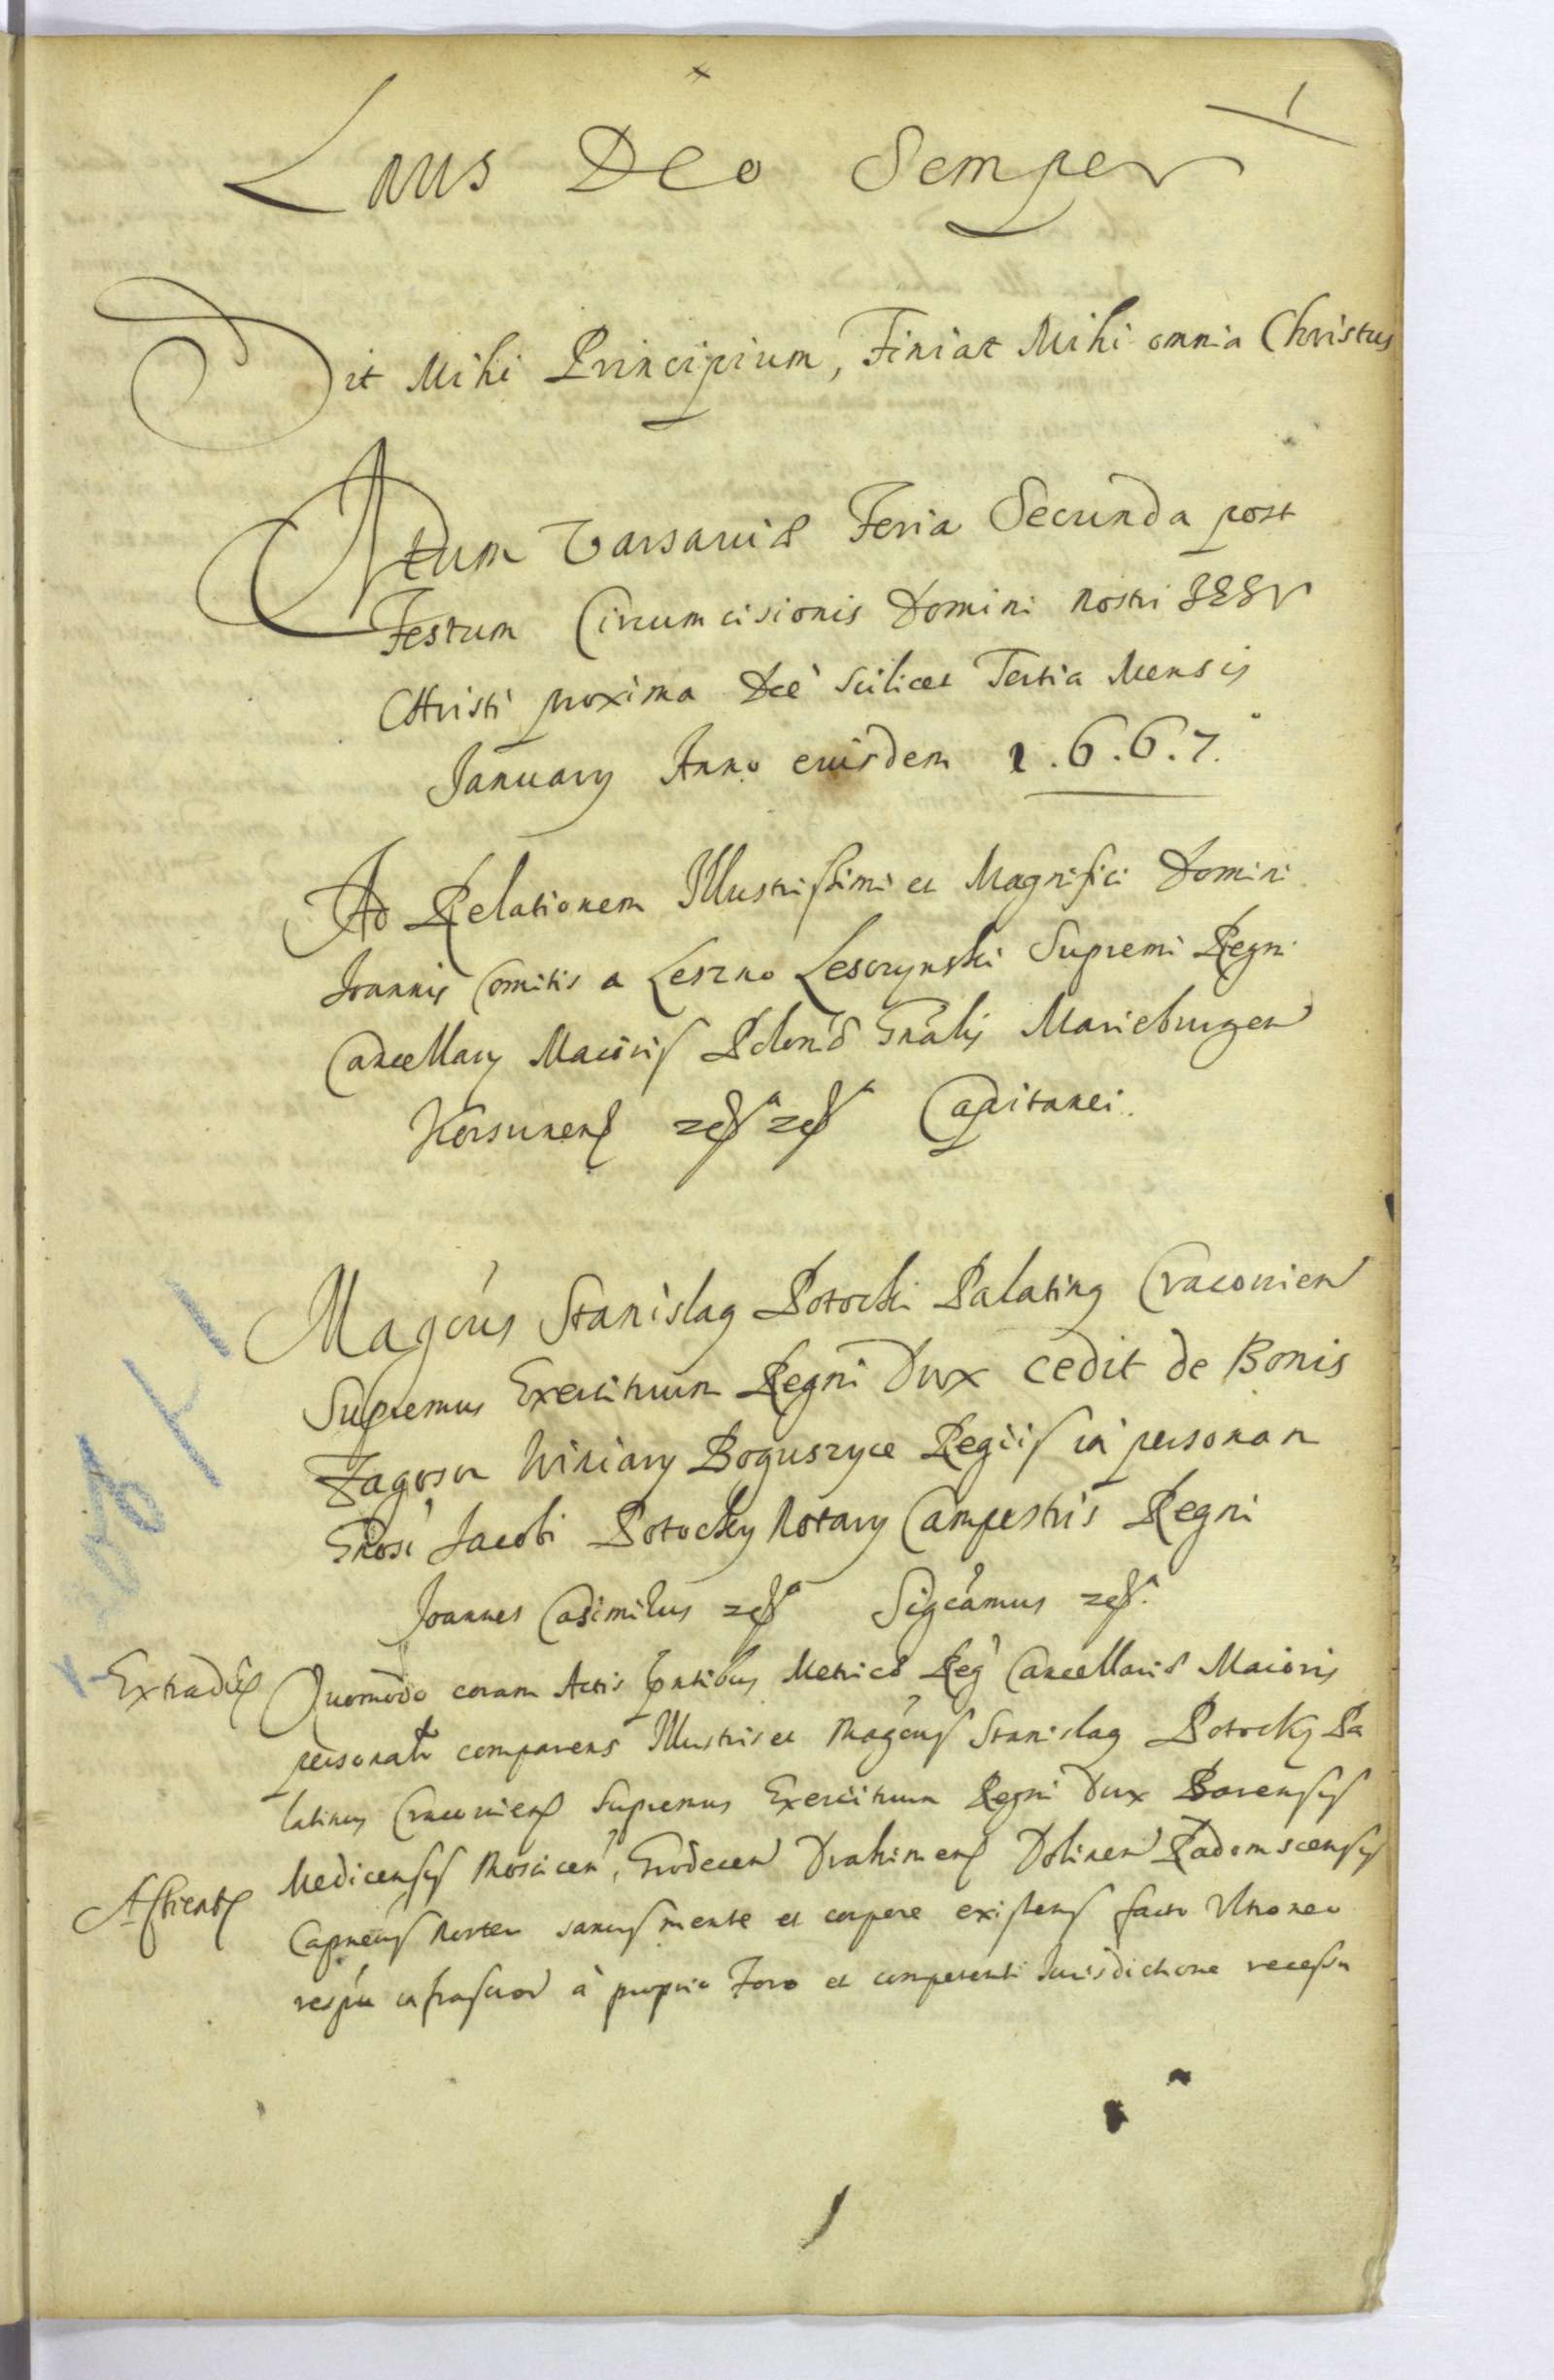 1
Laus Deo Semper
Dit Mihi Principium, Finiat Mihi omnia Christus
Actum Varsaviæ Feria Secunda post
Festum Circumcisionis Domini Nostri IESV
CHristi proxima Die scilicet Tertia Mensis
Januarij Anno eiusdem 1.6.6.7.
Ad Relationem Illustrissimi et Magnifici Domini
Joannis Comitis a Leszno Lesczynski Supremi Regni
Cancellarij Maioris Polon: Gnalis Marieburgen
Korsunen Capitanei.
Magcus Stanislaus Potocki Palatinus Cracovien
Supremus Exercituum Regni Dux cedit de Bonis
Winiary Boguszyce Regiis in personam
Gnosi Jacobi Potocky Notarij Campestris Regni
Joannes Casimirus Sigcamus
Quomodo coram Actis pntibus Metrices Reg Cancellariæ Maioris
personalr comparens Illustris et Magcus Stanislaus Potocky Pa
latinus Cracovien Supremus Exercituum Regni Dux Barensis
Medicensis Moscicen, Grodecen Drahimen Dolinen Radomscensis
Capneus Noster sanus mente et corpore existens facto Ultroneo
respu infrascr à proprio Foro et competenti Jurisdictione recessu